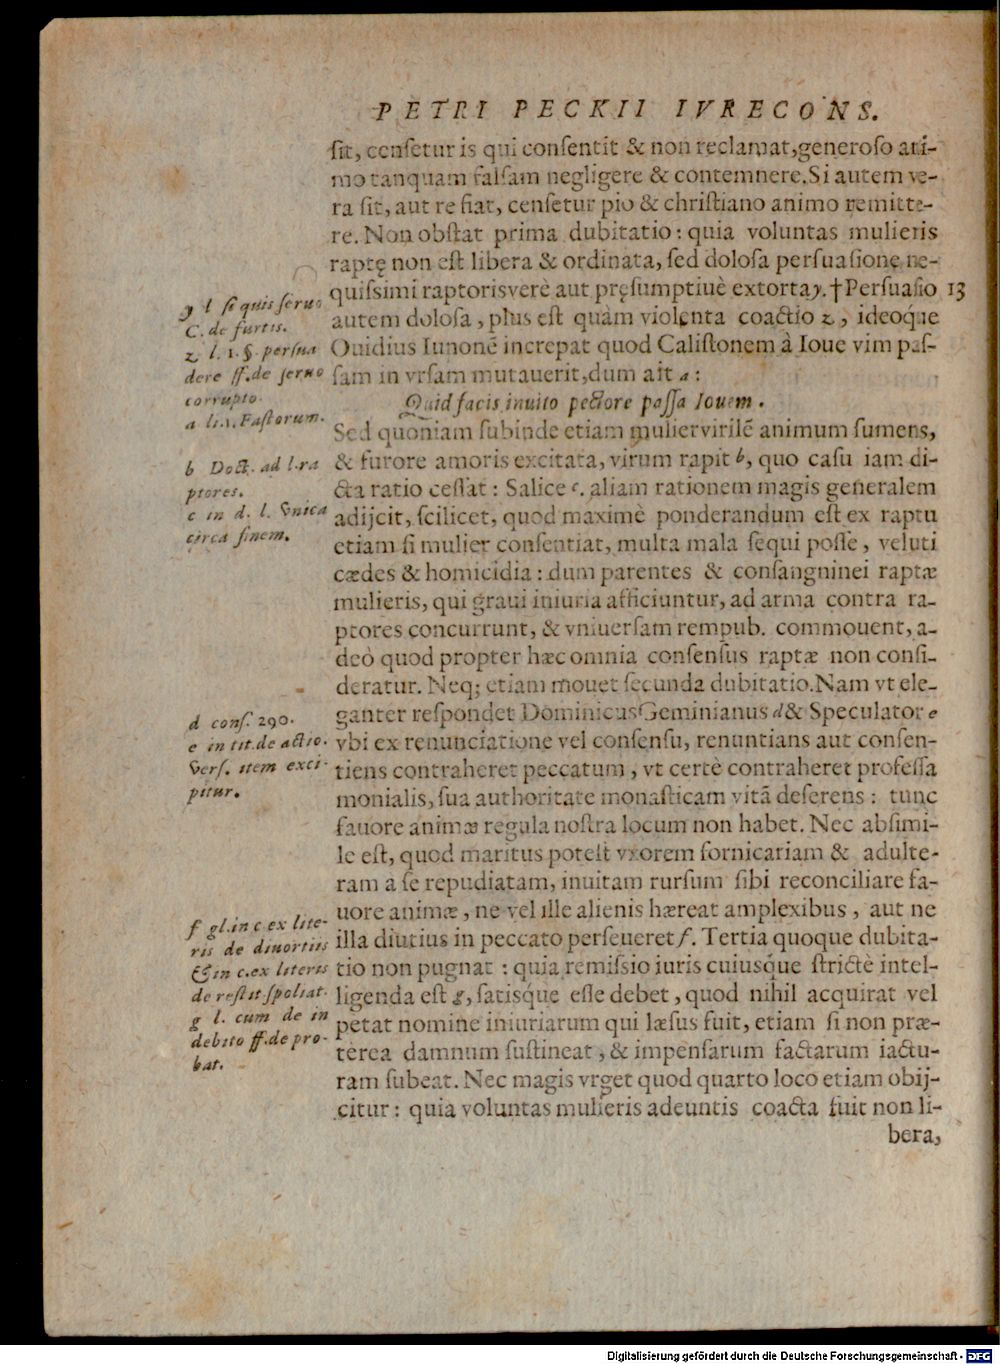 PETRI PECKII IVRECONS.
sit, censetur is qui consentit & non reclamat, generoso ani-
mo tanquam falsam negligere & contemnere. Si autem ve-
ra sit, aut re fiat, censetur pio & christiano animo remitte-
re. Non obstat prima dubitatio: quia voluntas mulieris
raptę non est libera & ordinata, sed dolosa persuasione ne-
quissimi raptoris verè aut pręsumptiuè extorta y. † Persuasio 13
autem dolosa, plus est quàm violenta coactio z, ideoque
Ouidius Iunonē increpat quod Calistonem à Ioue vim pas-
sam in vrsam mutauerit, dum ait a:
Quid facis inuito pectore passa Iouem.
Sed quoniam subinde etiam mulier virilē animum sumens,
& furore amoris excitata, virum rapit b, quo casu iam di-
cta ratio cessat: Salice c. aliam rationem magis generalem
adijcit, scilicet, quod maximè ponderandum est ex raptu
etiam si mulier consentiat, multa mala sequi posse, veluti
cædes & homicidia: dum parentes & consangninei raptæ
mulieris, qui graui iniuria afficiuntur, ad arma contra ra-
ptores concurrunt, & vniuersam rempub. commouent, a-
deò quod propter hæc omnia consensus raptæ non consi-
deratur. Neq; etiam mouet secunda dubitatio. Nam vt ele-
ganter respondet Dominicus Geminianus d & Speculator e
vbi ex renunciatione vel consensu, renuntians aut consen-
tiens contraheret peccatum, vt certè contraheret professa
monialis, sua authoritate monasticam vitā deserens: tunc
fauore animæ regula nostra locum non habet. Nec absimi-
le est, quod maritus potest vxorem fornicariam & adulte-
ram a se repudiatam, inuitam rursum sibi reconciliare fa-
uore animæ, ne vel ille alienis hæreat amplexibus, aut ne
illa diutius in peccato perseueret f. Tertia quoque dubita-
tio non pugnat: quia remissio iuris cuiusque strictè intel-
ligenda est g, satisque esse debet, quod nihil acquirat vel
petat nomine iniuriarum qui læsus fuit, etiam si non præ-
terea damnum sustineat, & impensarum factarum iactu-
ram subeat. Nec magis vrget quod quarto loco etiam obij-
citur: quia voluntas mulieris adeuntis coacta fuit non li-
bera,
y l si quis seruo
C. de furtis.
z l. 1. §. persua
dere ff. de seruo
corrupto.
a li.1. Fastorum.
b Doct. ad l. ra
ptores.
c in d. l. vnica
circa finem.
d cons. 290.
e in tit. de actio.
vers. item exci-
pitur.
f gl. in c ex lite-
ris de diuortiis
& in c. ex literis
de restit spoliat.
g l. cum de in
debito ff. de pro-
bat.
Digitalisierung gefördert durch die Deutsche Forschungsgemeinschaft - DFG